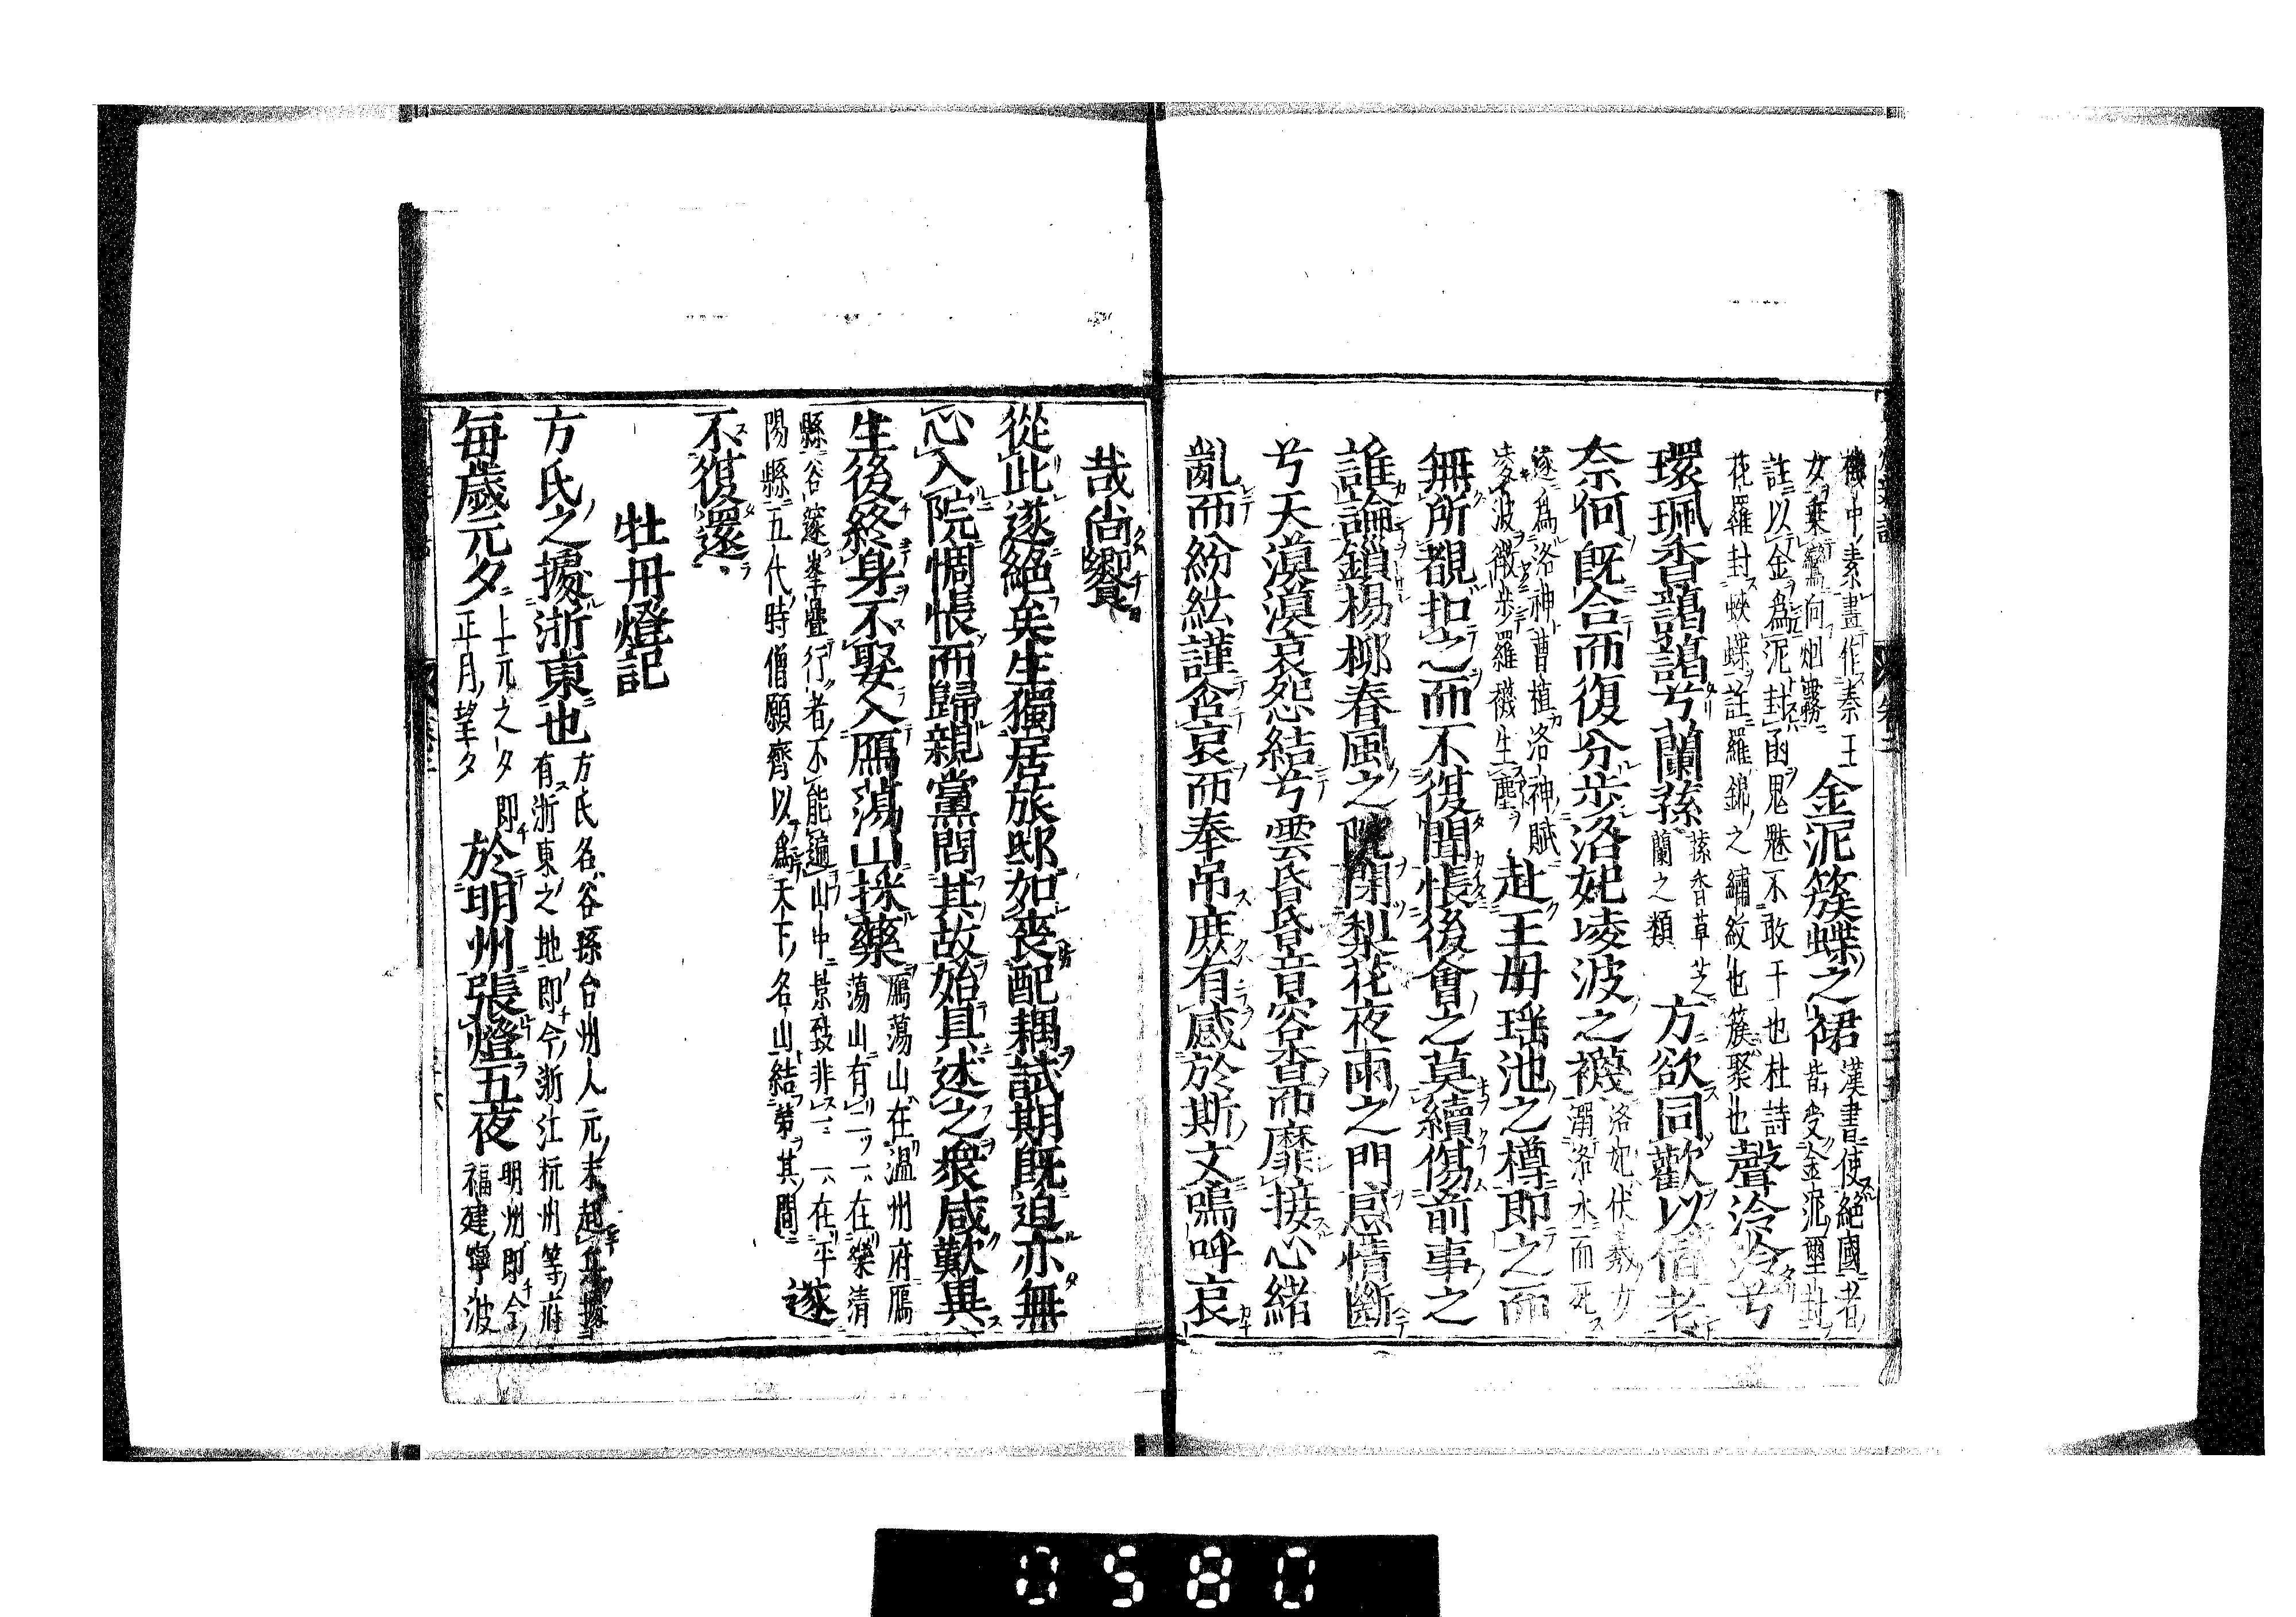 機中素畫作秦王
女乘鸞向烟霧金泥簇蝶之裙漢書使絶國者
皆受金泥璽封
註以金爲泥封函鬼魅不敢干也杜詩
花羅封蛺蝶註羅錦之繡紋也簇聚也聲泠泠兮
環珮香藹藹兮蘭蓀蓀香草芝
蘭之類方欲同歡以偕老
奈何既合而復分步洛妃凌波之襪洛妃伏羲女
溺洛水而死
遂爲洛神曹植洛神賦
凌波微步羅襪生塵赴王母瑶池之樽即之而
無所覩扣之而不復聞悵後會之莫續傷前事之
誰論鎖楊柳春風之院閉梨花夜雨之門恩情斷
兮天漠漠哀怨結兮雲昏昏音容杳而靡接心緒
亂而紛紜謹含哀而奉吊庶有感於斯文嗚呼哀
哉尚饗
從此遂絶矣生獨居旅邸如喪配耦試期既迫亦無
心入院惆悵而歸親黨問其故始具述之衆咸歎異
生後終身不娶入鴈蕩山採藥鴈蕩山在温州府鴈
蕩山有二一在樂清
縣谷邃峯疊行者不能遍山中景致非一一在平
陽縣五代時僧願齊以爲天下名山結第其間遂
不復還
牡丹燈記
方氏之據浙東也方氏名谷孫台州人元末起兵據
有浙東之地即今浙江杭州等府
毎歳元夕上元之夕即
正月望夕於明州張燈五夜明州即今
福建寧波
0580